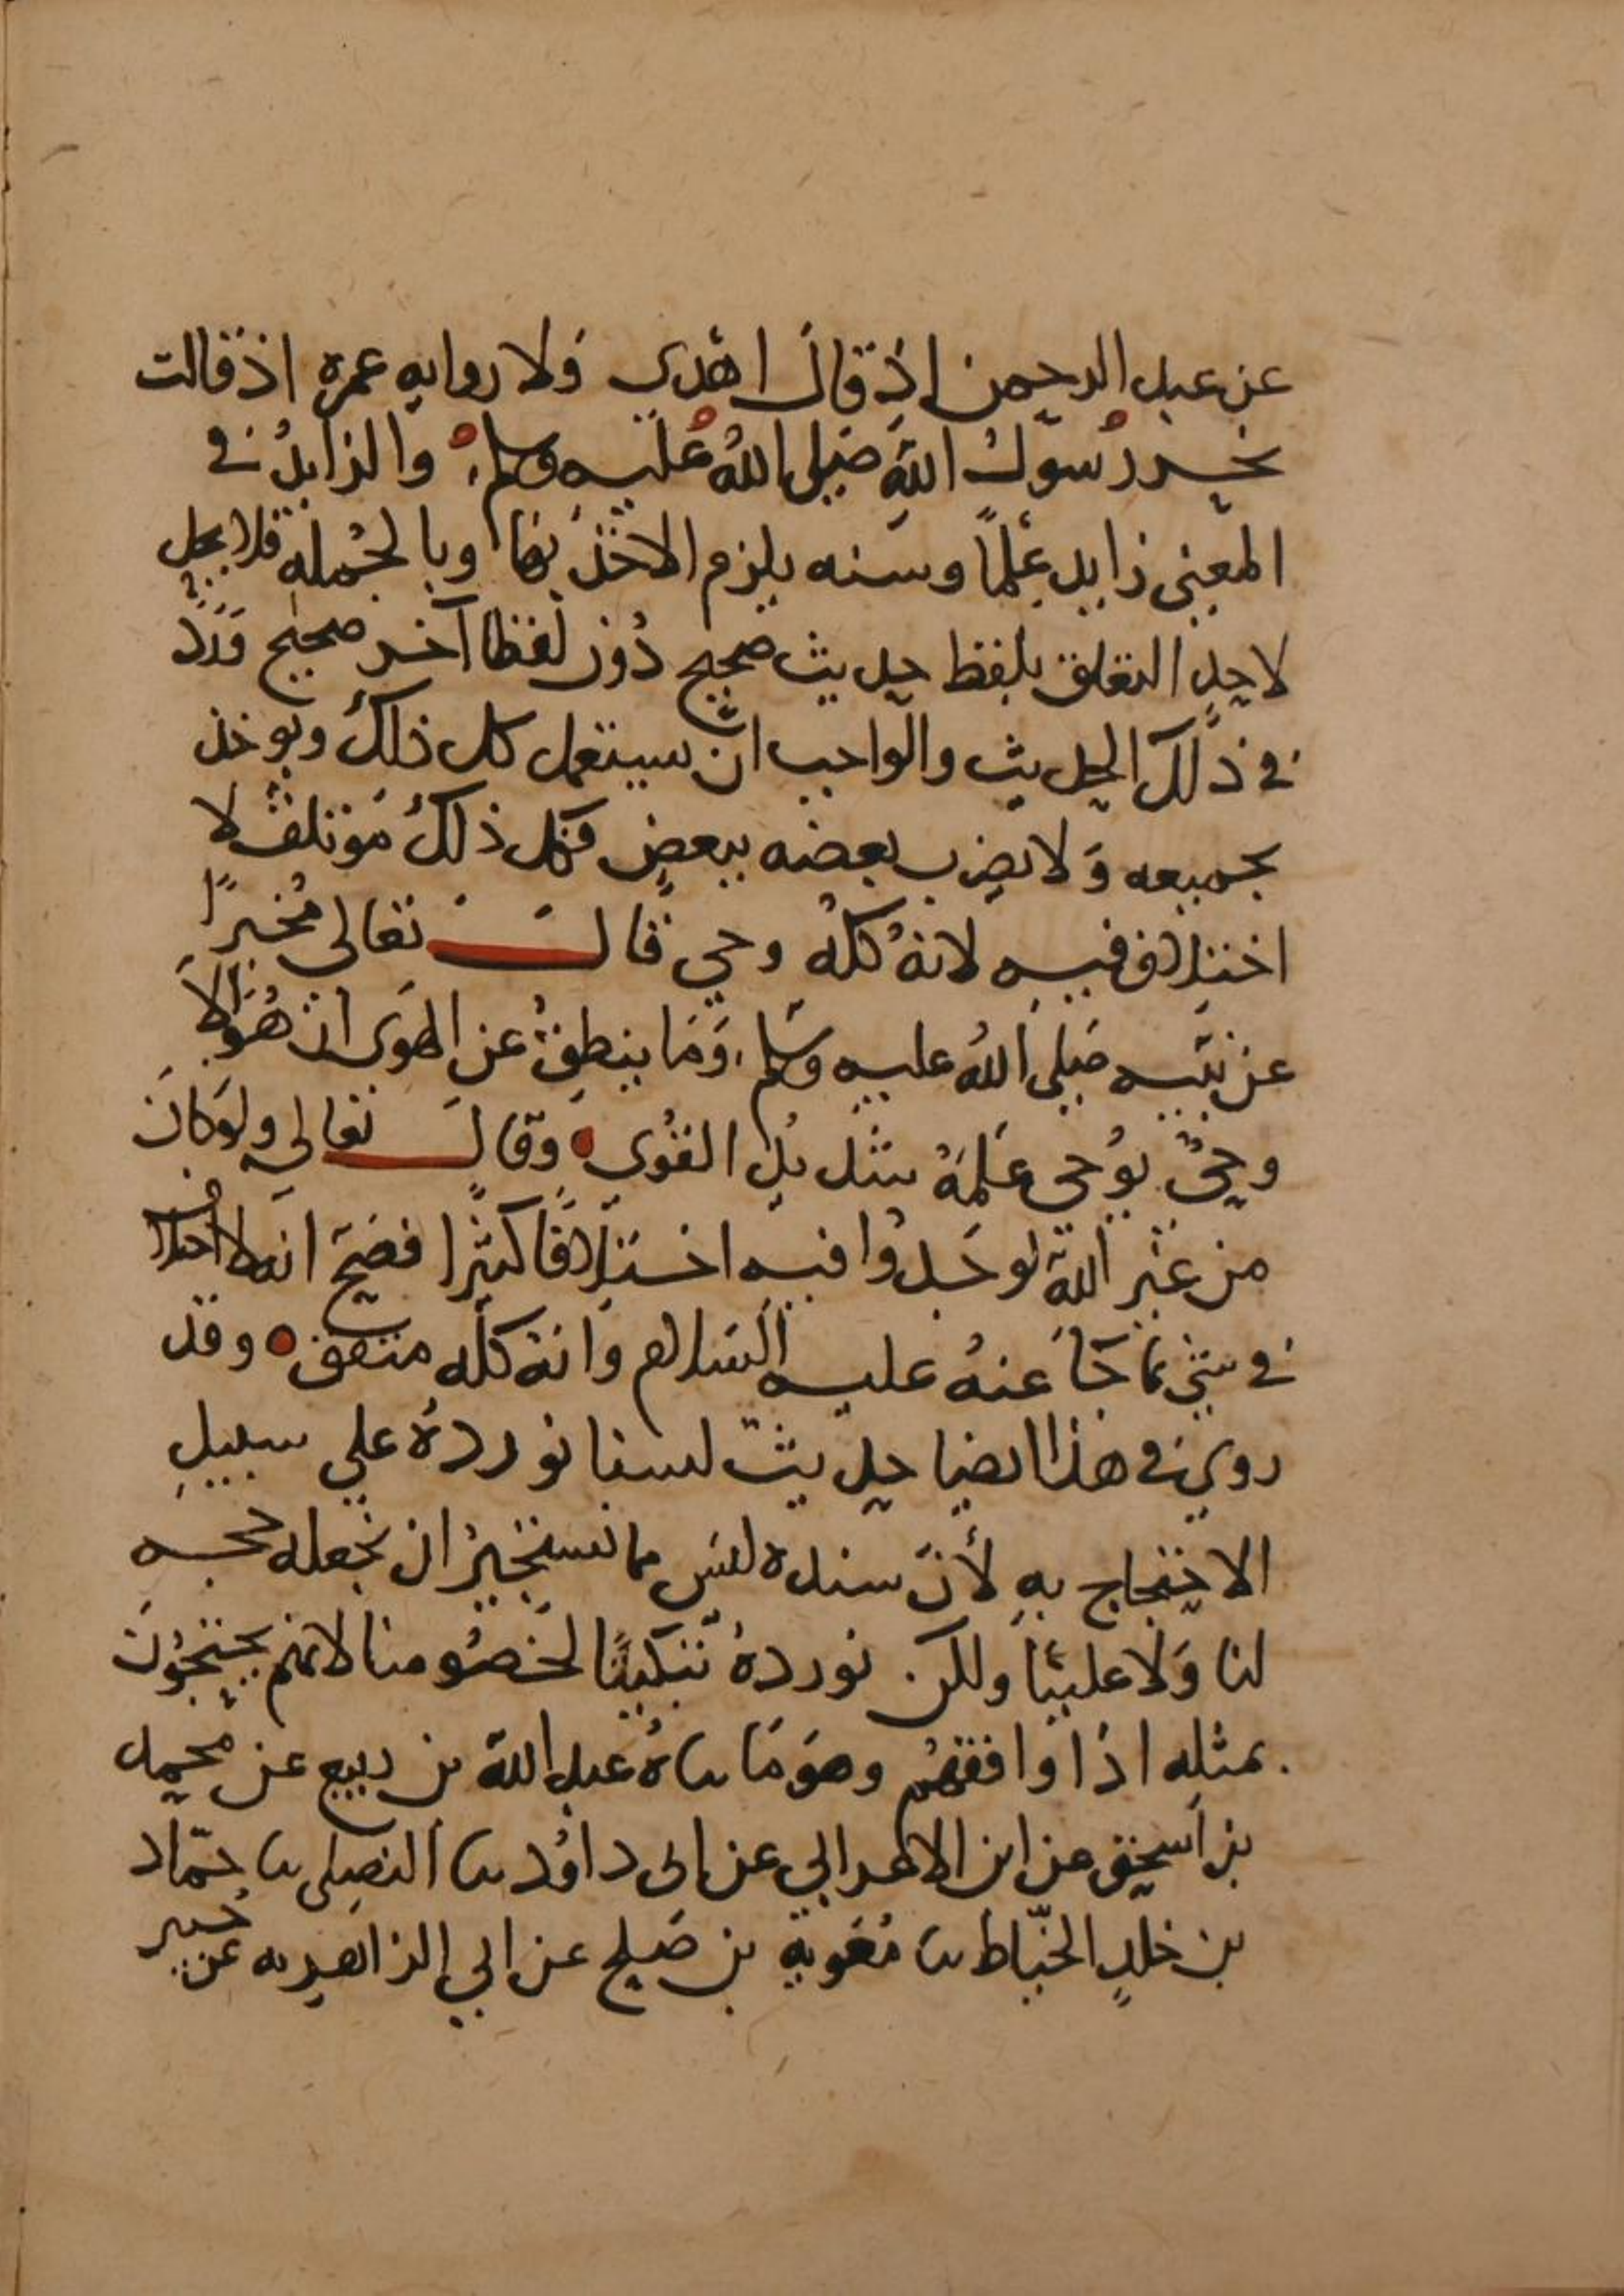 عن عبد الرحمن اذ قال اهدى ولا روايه عمره اذ قالت
نحر رسول الله صلى الله عليه وسلم والزايد في
المعنى زايد علما وسنه يلزم الاخذ بها وبالجمله فلا يحل
لاحد التعلق بلفظ حديث صحيح دون لفظ آخر صحيح ورد
في ذلك الحديث والواجب ان يستعمل كل ذلك ويوخذ
بجميعه ولا يضرب بعضه ببعض فكل ذلك مؤتلف لا
اختلاف فيه لانه كله وحي قال تعالى مخبرا
عن نبيه صلى الله عليه وسلم وما ينطق عن الهوى ان هو الا
وحي يوحى علمه شديد القوى وقال تعالى ولو كان
من غير الله لوجدوا فيه اختلافا كثيرا فصح انه لا اختلاف
في شي مما جا عنه عليه السلام وانه كله متفق وقد
روي في هذا ايضا حديث لسنا نورده على سبيل
الاحتجاج به لأن سنده ليس مما نستجيز ان نجعله حجه
لنا ولا علينا ولكن نورده تبكيتا لخصومنا لانهم يحتجون
بمثله اذا وافقهم وهو ما ثناه عبد الله بن ربيع عن محمد
بن اسحق عن ابن الاعرابي عن ابى داود ثنا النفيلى ثنا حماد
بن خلد الخياط ثنا معويه بن صلح عن ابي الزاهريه عن جبير